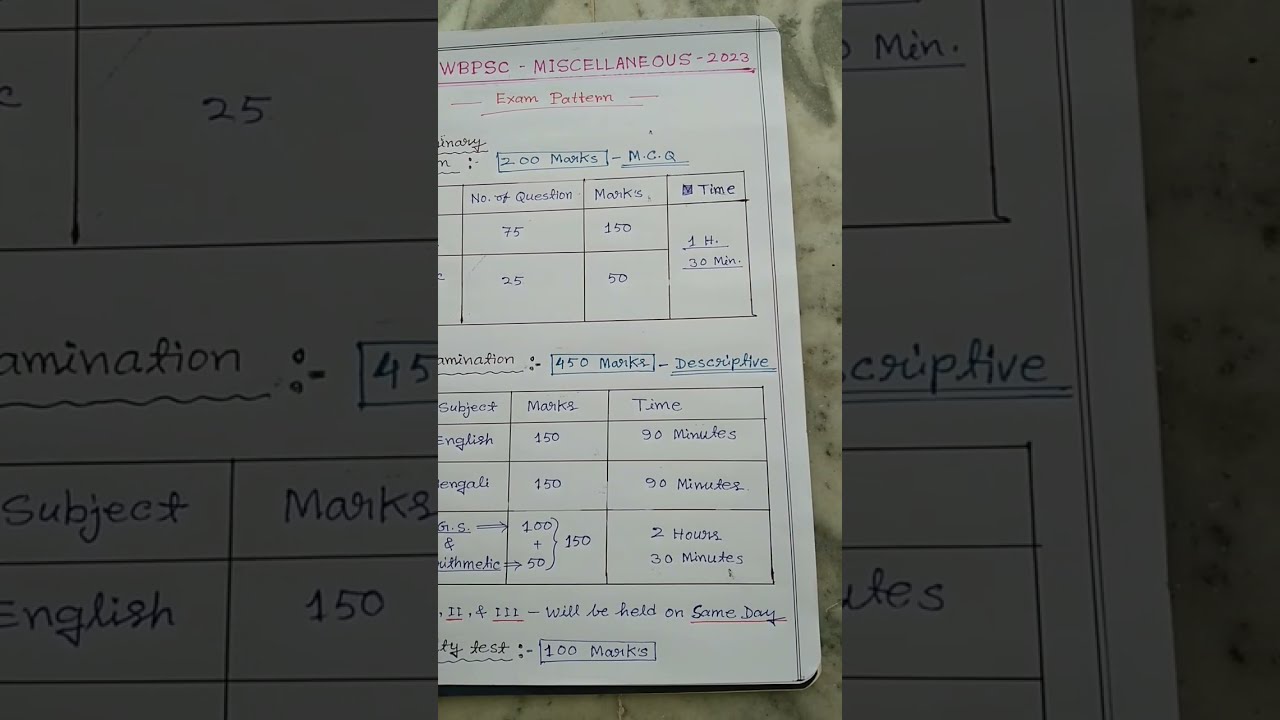 WBPSC - MISCELLANEOUS - 2023
Exam Pattern
inary
n :- 200 Marks - M.C.Q
No. of Question Mark's Time
75 150 1 H. 30 Min.
c 25 50
amination :- 450 Marks - Descriptive
Subject Marks Time
English 150 90 Minutes
engali 150 90 Minutes
G.S. ⇒ 100 2 Hours
& + } 150
ithmetic → 50 30 Minutes
, II, & III - Will be held on Same Day
ty test :- 100 Mark's
c 25
amination :- 45
Subject Marks
English 150
0 Min.
criptive
utes